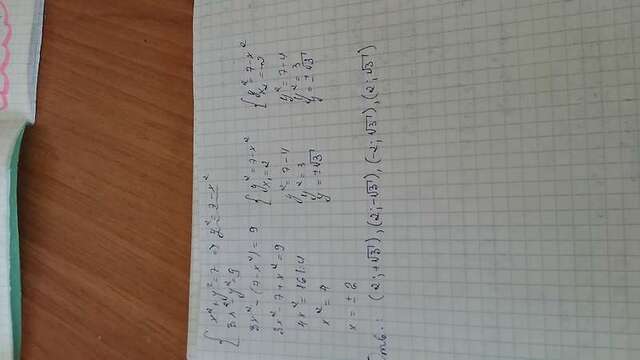 x² + y² = 7 => y² = 7 - x²
3x² - y² = 9
3x² - (7 - x²) = 9
3x² - 7 + x² = 9
4x² = 16 | : 4
x² = 4
x = ± 2
y² = 7 - x²
x₁ = 2
y² = 7 - 4
y² = 3
y = ±√3
y² = 7 - x²
x₂ = -2
y² = 7 - 4
y² = 3
y = ±√3
Отв.: (2; +√3), (2; -√3), (-2; √3), (2; √3)